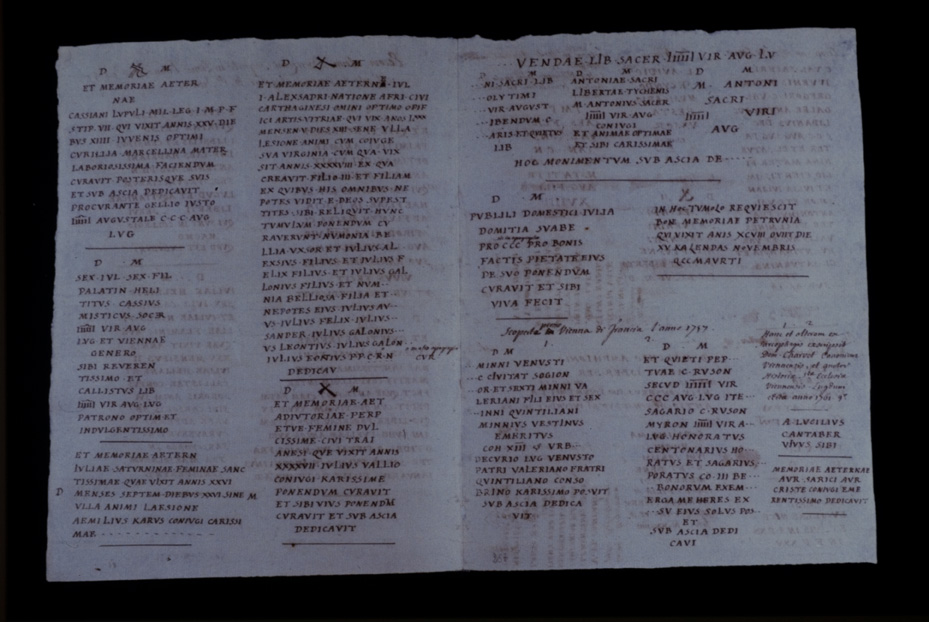 D M
ET MEMORIAE AETER
NAE
CASSIANI LVPVLI MIL LEG I M P F
STIP VII QVI VIXIT ANNIS XXV DIE
BVS XIIII IVVENIS OPTIMI
CVRILLIA MARCELLINA MATER
LABORIOSISSIMA FACIENDVM
CVRAVIT POSTERISQVE SVIS
ET SVB ASCIA DEDICAVIT
PROCVRANTE GELLIO IVSTO
IIIIII AVGVSTALE C C C AVG
LVG
D M
SEX IVL SEX FIL
PALATIN HELI
TITVS CASSIVS
MISTICVS SOCER
IIIIII VIR AVG
LVG ET VIENNAE
GENERO
SIBI REVEREN
TISSIMO ET
CALLISTVS LIB
IIIIII VIR AVG LVG
PATRONO OPTIM ET
INDVLGENTISSIMO
ET MEMORIAE AETERN
IVLIAE SATVRNINAE FEMINAE SANC
TISSIMAE QVAE VIXIT ANNIS XXVI
D MENSES SEPTEM DIEBVS XXVI SINE M
VLLA ANIMI LAESIONE
AEMILIVS KARVS CONIVGI CARISSI
MAE
D M
ET MEMORIAE AETERNAE IVL
I ALEXSADRI NATIONE AFRI CIVI
CARTHAGINESI OMINI OPTIMO OPIF
ICI ARTIS VITRIAE QVI VIX ANOS
MENSEN V DIES XIII SENE VLLA
LESIONE ANIMI CVM COIVGE
SVA VIRGINIA CVM QVA VIX
SIT ANNIS XXXXVIII EX QVA
CREAVIT FILIO III ET FILIAM
EX QVIBVS HIS OMNIBVS NE
POTES VIDIT E DEOS SVPEST
TITES SIBI RELIQVIT HVNC
TVMVLVM PONENDVM CV
RAVERVNT NVMONIA BE
LLIA VXSOR ET IVLIVS AL
EXSIVS FILIVS ET IVLIVS F
ELIX FILIVS ET IVLIVS GAL
LONIVS FILIVS ET NVM
NIA BELLIOSA FILIA ET
NEPOTES EIVS IVLIVS AV
VS IVLIVS FELIX IVLIVS
SANDER IVLIVS GALONIVS
VS LEONTIVS IVLIVS GALON
IVLIVS EONIVS P P C R N
DEDICAV
D M
ET MEMORIAE AET
ADIVTORIAE PERP
ETVE FEMINE DVL
CISSIME CIVI TRAI
ANESI QVE VIXIT ANNIS
XXXXVII IVLIVS VALLIO
CONIVGI KARISSIME
PONENDVM CVRAVIT
ET SIBI VIVVS PONENDM
CVRAVIT ET SVB ASCIA
DEDICAVIT
VENDAE LIB SACER IIIIII VIR AVG LV
D M
NI SACRI LIB
OLYTIMI
VIR AVGVST
IBENDVM C
ARIS ET QVIETVS
LIB
D M
ANTONIAE SACRI
LIBERTAE TYCHENIS
M ANTONIVS SACER
IIIIII VIR AVG
CONIVGI
ET ANIMAE OPTIMAE
ET SIBI CARISSIMAE
D M
M ANTONI
SACRI
IIIIII VIRI
AVG
HOC MONIMENTVM SVB ASCIA DE
D M
PVBLILI DOMESTICI IVLIA
DOMITIA SVABE
PRO CCC PRO BONIS
FACTIS PIETATE EIVS
DE SVO PONENDVM
CVRAVIT ET SIBI
VIVA FECIT
IN HOC TVMOLO REQVIESCIT
BONE MEMORIAE PETRVNIA
QVI VIXIT ANIS XCVIII OVIIT DIE
XV KALENDAS NOVEMBRIS
Vienna anno 1757
D M
MINNI VENVSTI
C CIVITAT SOGION
OR ET SEXTI MINNI VA
LERIANI FILI EIVS ET SEX
INNI QVINTILIANI
MINNIVS VESTINVS
EMERITVS
COH XIII VRB
DECVRIO LVG VENVSTO
PATRI VALERIANO FRATRI
QVINTILIANO CONSO
BRINO KARISSIMO POSVIT
SVB ASCIA DEDICA
VIT
D M
ET QVIETI PEP
TVAE C RVSON
SECVD IIIIII VIR
CCC AVG LVG ITE
SAGARIO C RVSON
MYRON IIIIII VIR A
LVG HONORATVS
CENTONARIVS HO
RATVS ET SAGARIVS
PORATVS CO III BE
BONORVM EXEM
ERGA ME HERES EX
SV EIVS SOLVS POS
ET
SVB ASCIA DEDI
CAVI
A LVCILIVS
CANTABER
VIVVS SIBI
MEMORIAE AETERNAE
AVR SARICI AVR
CRISTE CONIVGI EME
RENTISSIMO DEDICAVIT